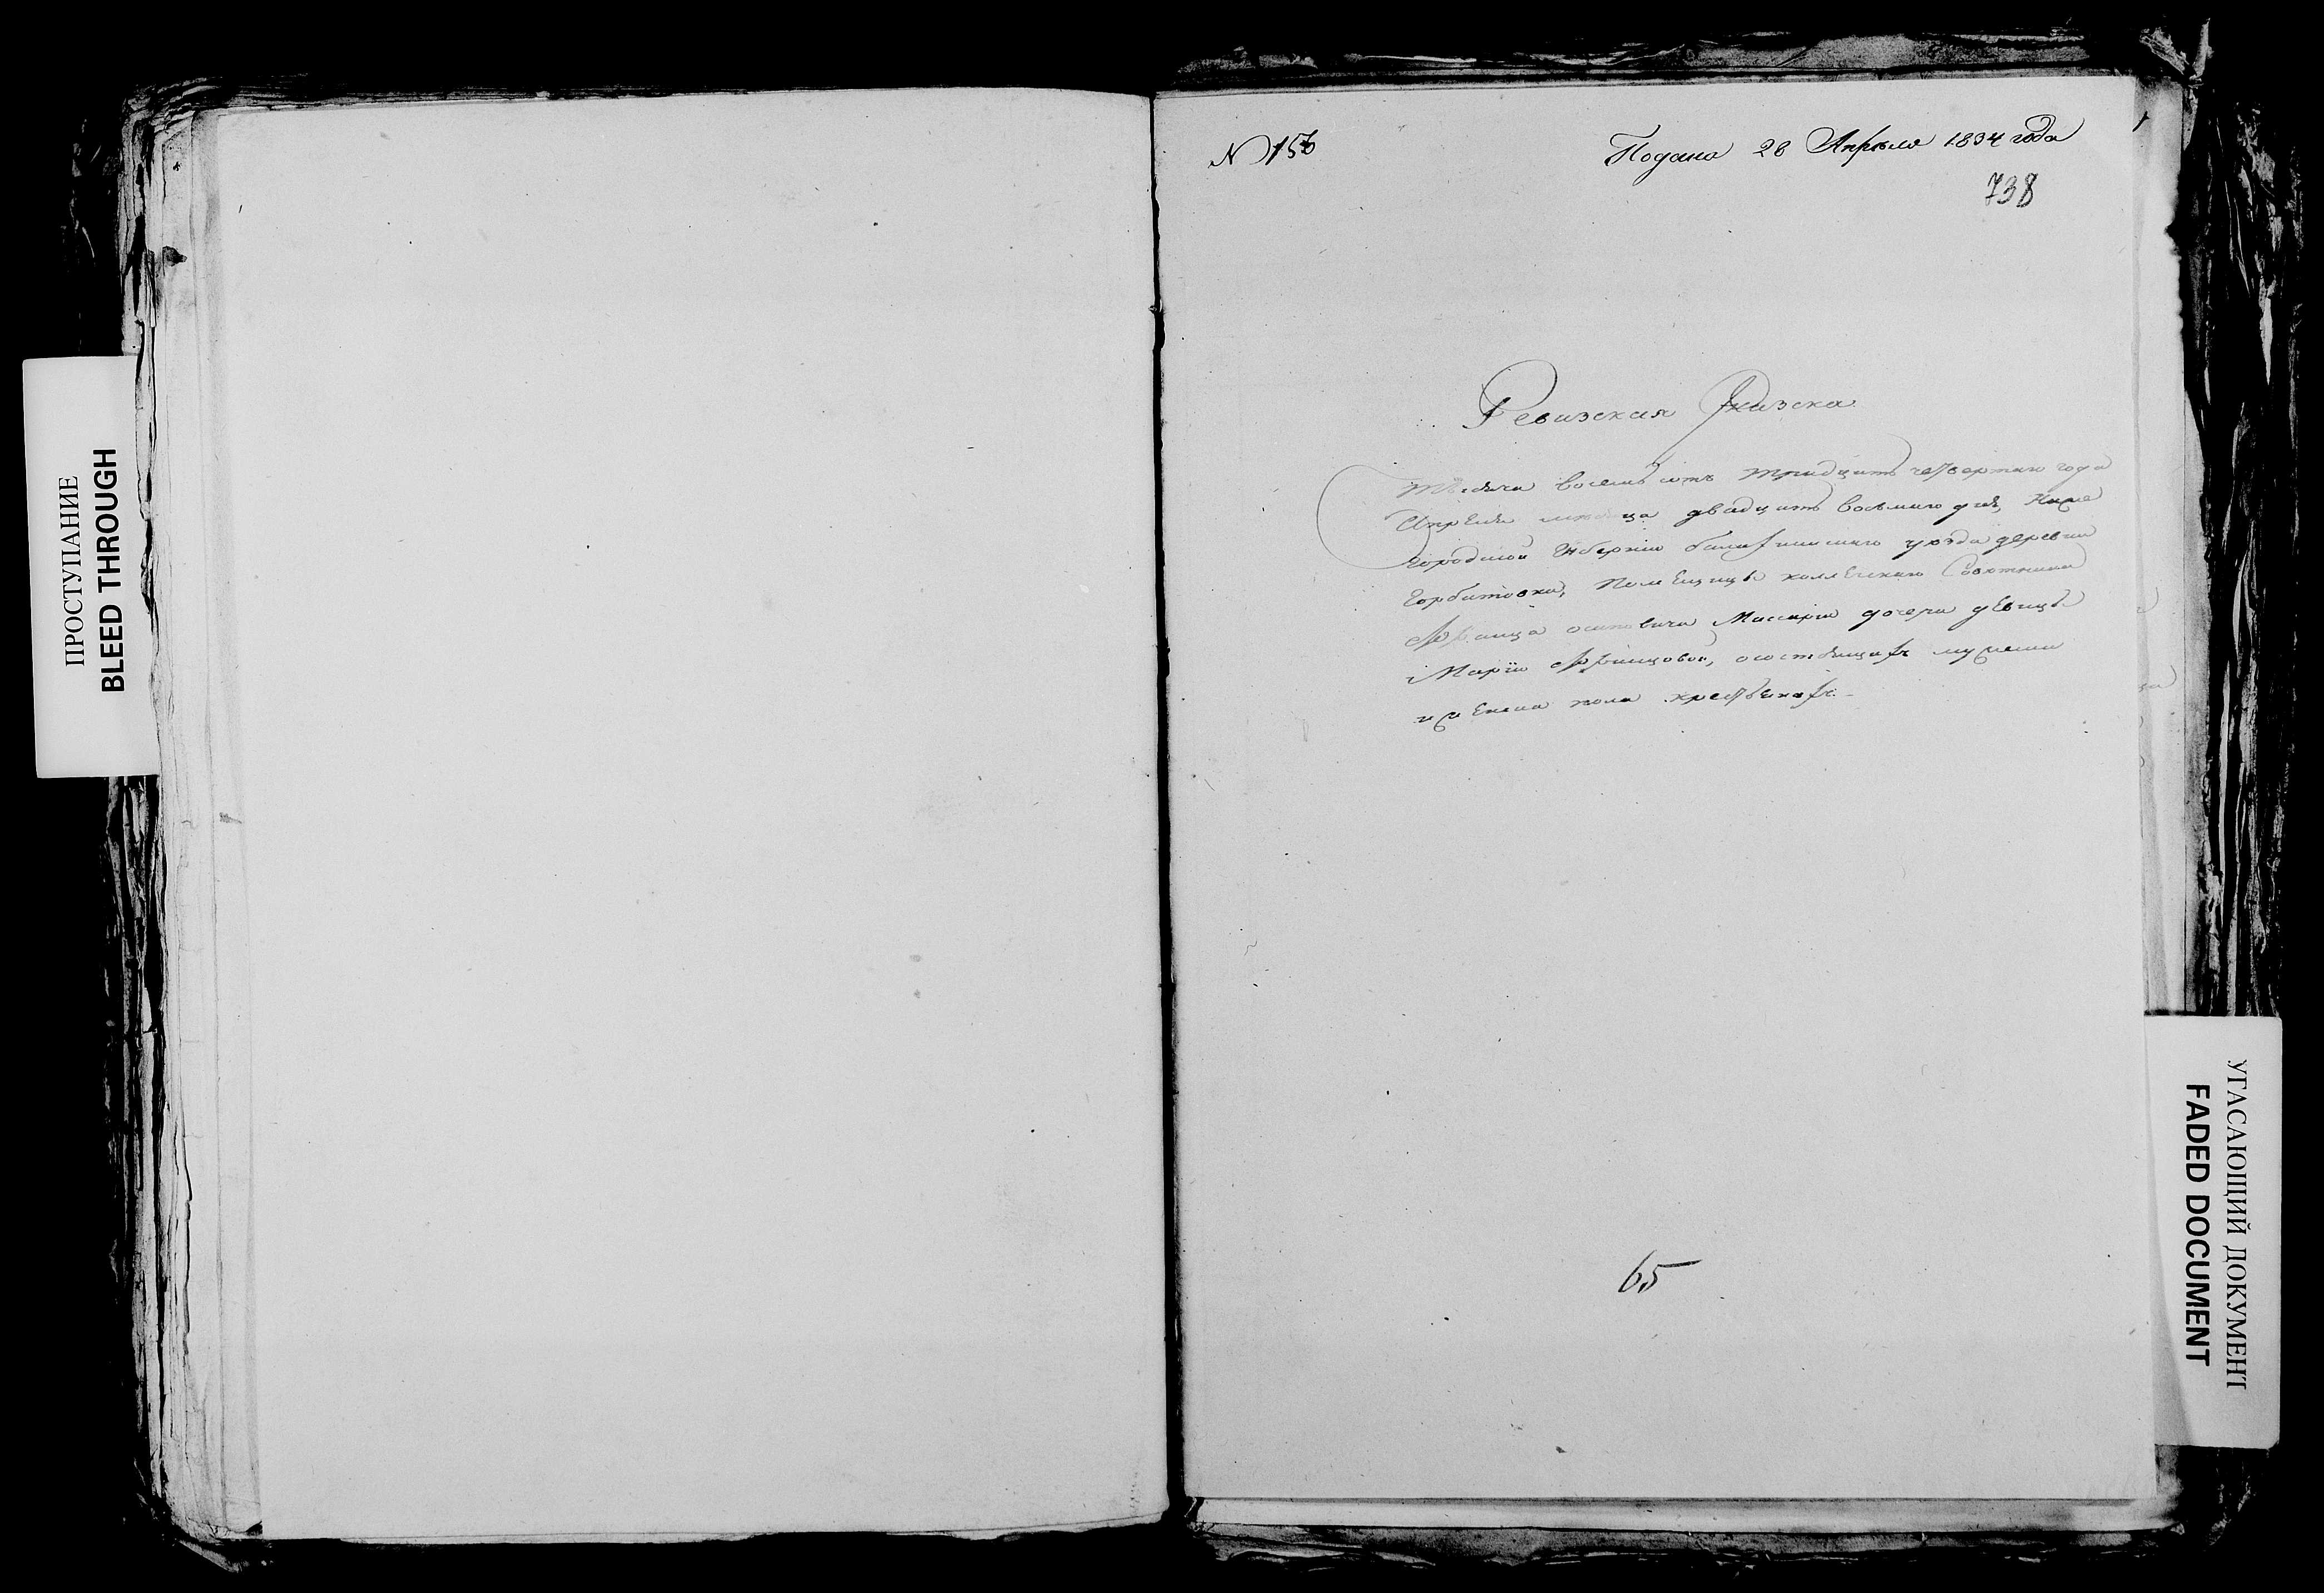 ПРОСТУПАНИЕ
BLEED THROUGH
N 156
Подана 28 Апреля 1834 года
738
Ревизская Сказска
Тысяча восемь сотъ тридцать четвертаго года
Апреля месяца двадцать восьмаго дня, Ниже
городской Губернiи балахнинскаго уезда деревни
Горбатовки, помещицы коллежскаго Советника
Франца осиповича Массарiя дочери девицы
Марiи Францовой, о состоящихъ мужеска
и женска пола крестьянахъ.
65
УГАСАЮЩИЙ ДОКУМЕНТ
FADED DOCUMENT